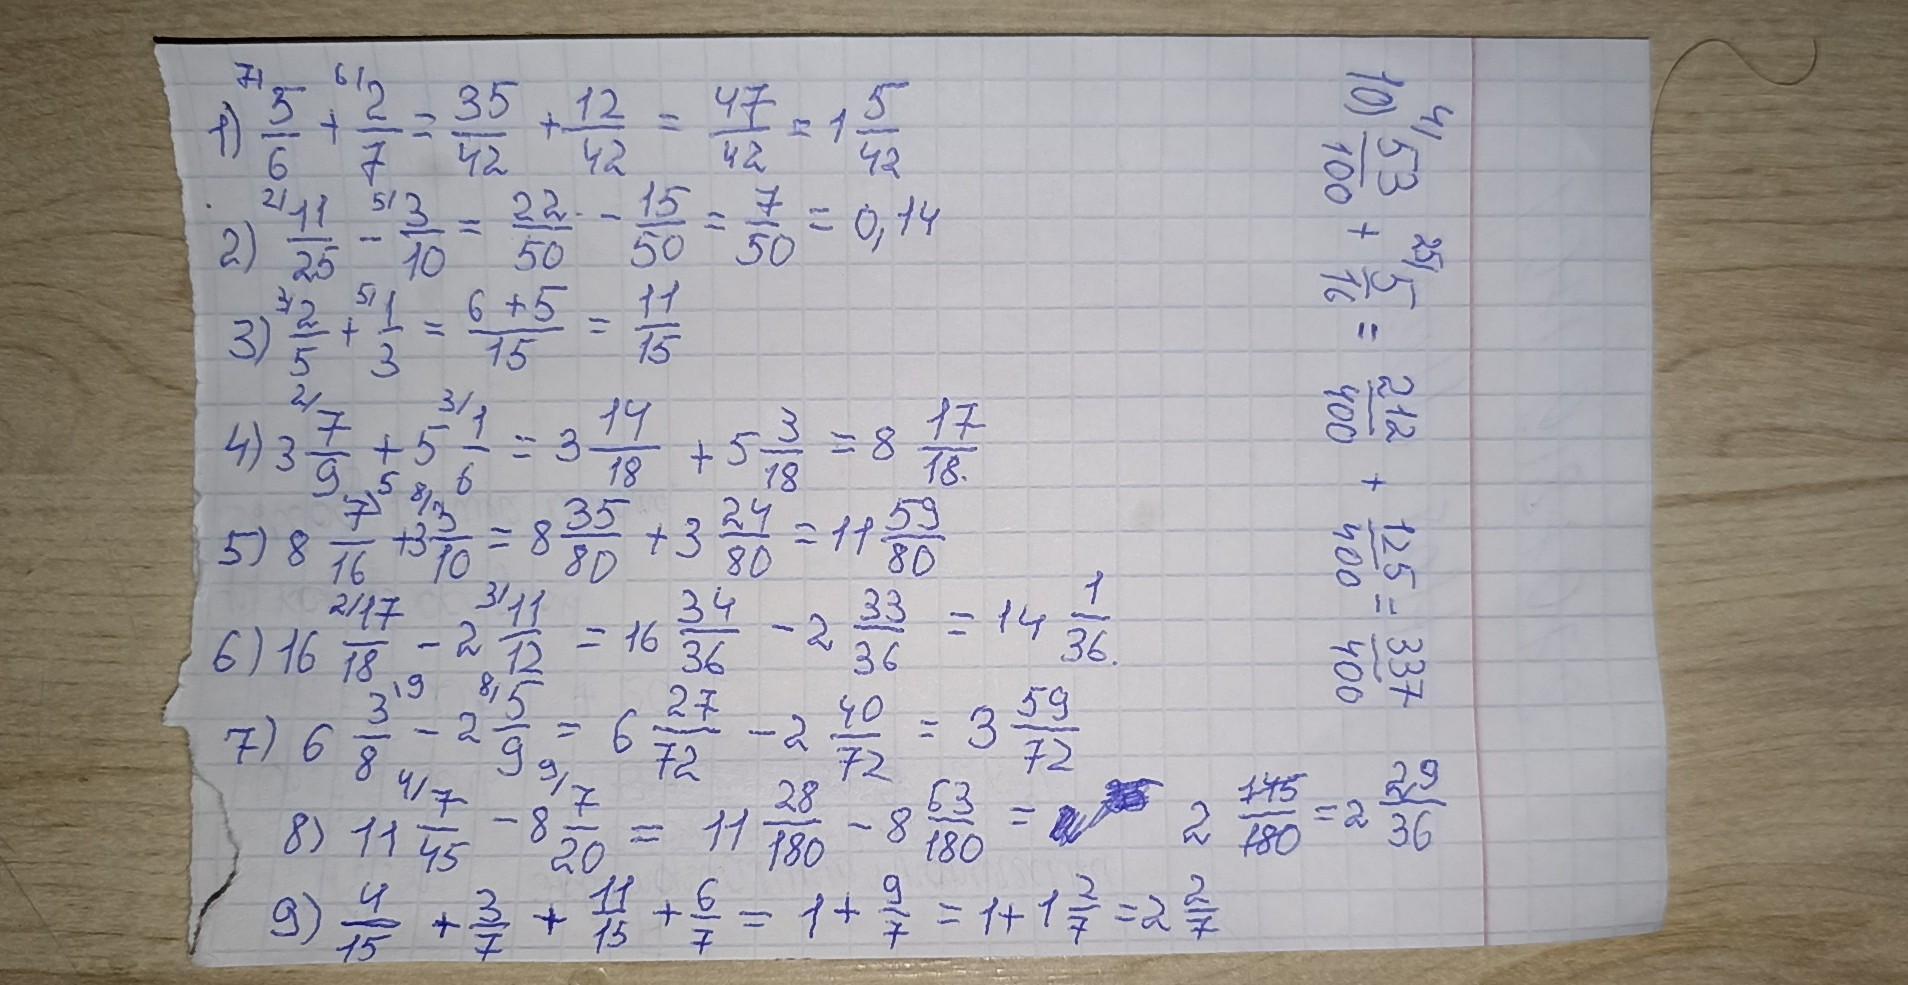 1) 7/ 5/6 + 6/ 2/7 = 35/42 + 12/42 = 47/42 = 1 5/42
2) 2/ 11/25 - 5/ 3/10 = 22/50 - 15/50 = 7/50 = 0,14
3) 3/ 2/5 + 5/ 1/3 = 6+5/15 = 11/15
4) 3 2/ 7/9 + 5 3/ 1/6 = 3 14/18 + 5 3/18 = 8 17/18.
5) 8 7/16 \5 + 3 8/ 3/10 = 8 35/80 + 3 24/80 = 11 59/80
6) 16 2/ 17/18 - 2 3/ 11/12 = 16 34/36 - 2 33/36 = 14 1/36.
7) 6 3/8 \9 - 2 8/ 5/9 = 6 27/72 - 2 40/72 = 3 59/72
8) 11 4/ 7/45 - 8 9/ 7/20 = 11 28/180 - 8 63/180 = 2 145/180 = 2 29/36
9) 4/15 + 3/7 + 11/15 + 6/7 = 1 + 9/7 = 1 + 1 2/7 = 2 2/7
10) 4/ 53/100 + 25/ 5/16 = 212/400 + 125/400 = 337/400